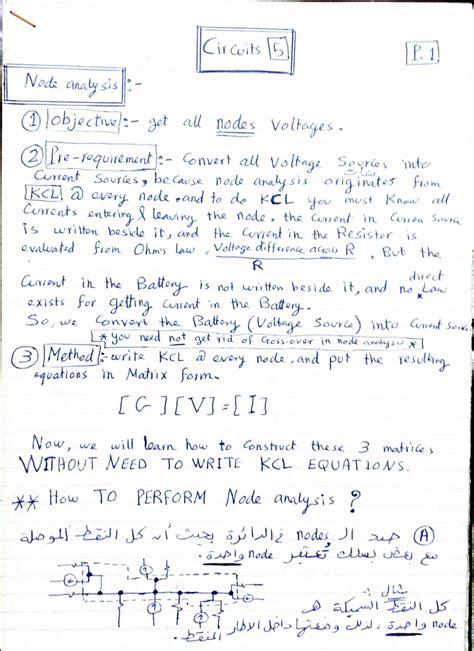 Circuits 5
P.1
Node analysis :-
① Objective :- get all nodes Voltages.
② Pre-requirement :- Convert all Voltage Sources into
Current Sources, because node analysis originates from
KCL @ every node, and to do KCL you must Know all
Currents entering & leaving the node, the Current in Curren source
is written beside it, and the Current in the Resistor is
evaluated from Ohm's law, Voltage difference across R / R , But the
Current in the Battery is not written beside it, and no direct Law
exists for getting Current in the Battery.
So, we Convert the Battery (Voltage Source) into Current Source
* you need not get rid of Cross-over in node analysis *
③ Method :- write KCL @ every node, and put the resulting
equations in Matrix form.
[G][V]=[I]
Now, we will learn how to Construct these 3 matrices
WITHOUT NEED TO WRITE KCL EQUATIONS.
** How TO PERFORM Node analysis ?
Ⓐ حدد الـ nodes في الدائرة بحيث أن كل النقط الموصلة
مع بعض بسلك تعتبر node واحدة.
مثال :-
كل النقط السميكة هـ
node واحدة، لذلك وضعتها داخل الاطار
المنقط.